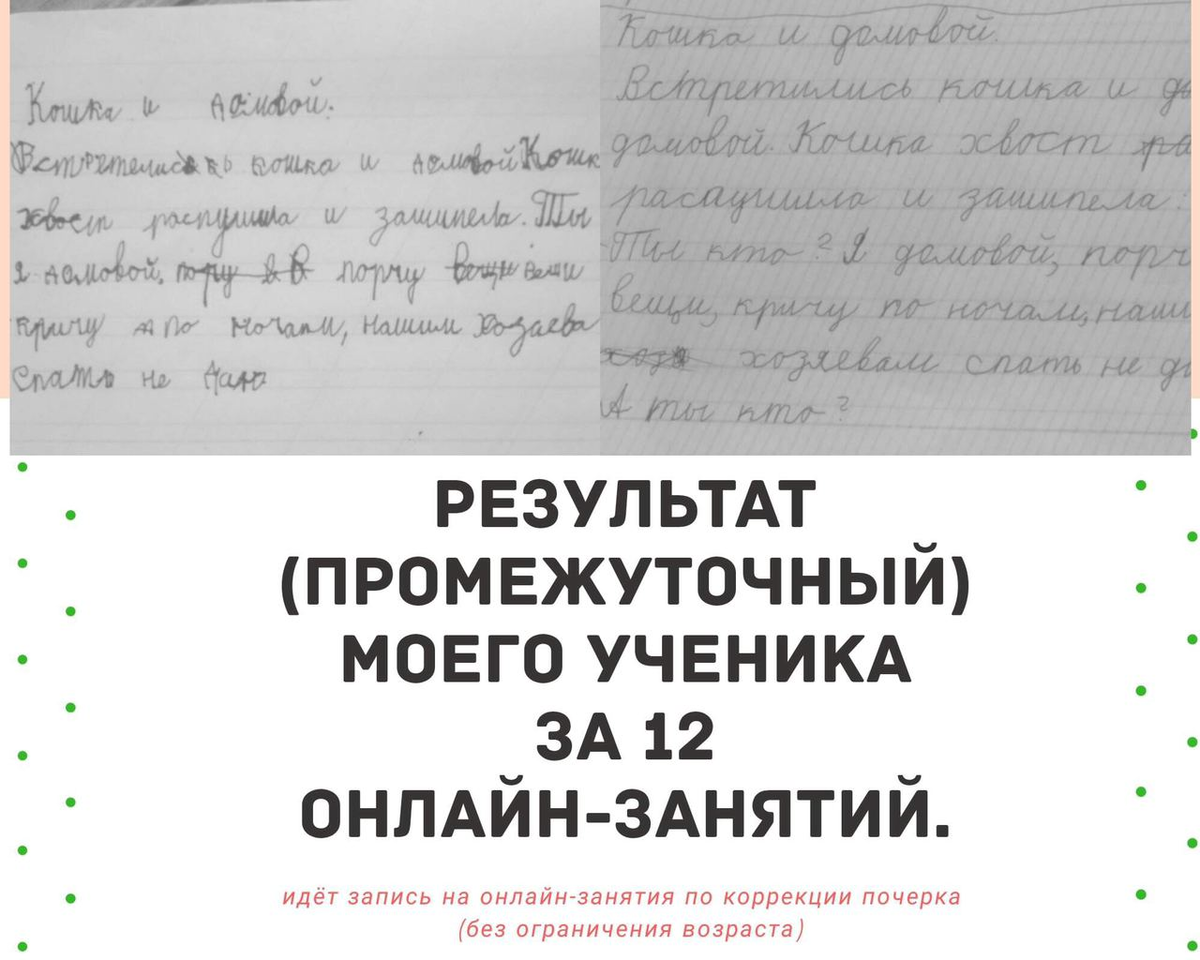 Кошка и домовой.
Встретились кошка и домовой Кошк
хвост распушила и зашипела. Ты
Я домовой, порчу вещи
кричу по ночам, нашим хозаева
спать не даю
Кошка и домовой.
Встретились кошка и до
домовой. Кошка хвост ра
распушила и зашипела:
Ты кто? Я домовой, порч
вещи, кричу по ночам, наши
хозяевам спать не д
А ты кто?
РЕЗУЛЬТАТ
(ПРОМЕЖУТОЧНЫЙ)
МОЕГО УЧЕНИКА
ЗА 12
ОНЛАЙН-ЗАНЯТИЙ.
идёт запись на онлайн-занятия по коррекции почерка
(без ограничения возраста)